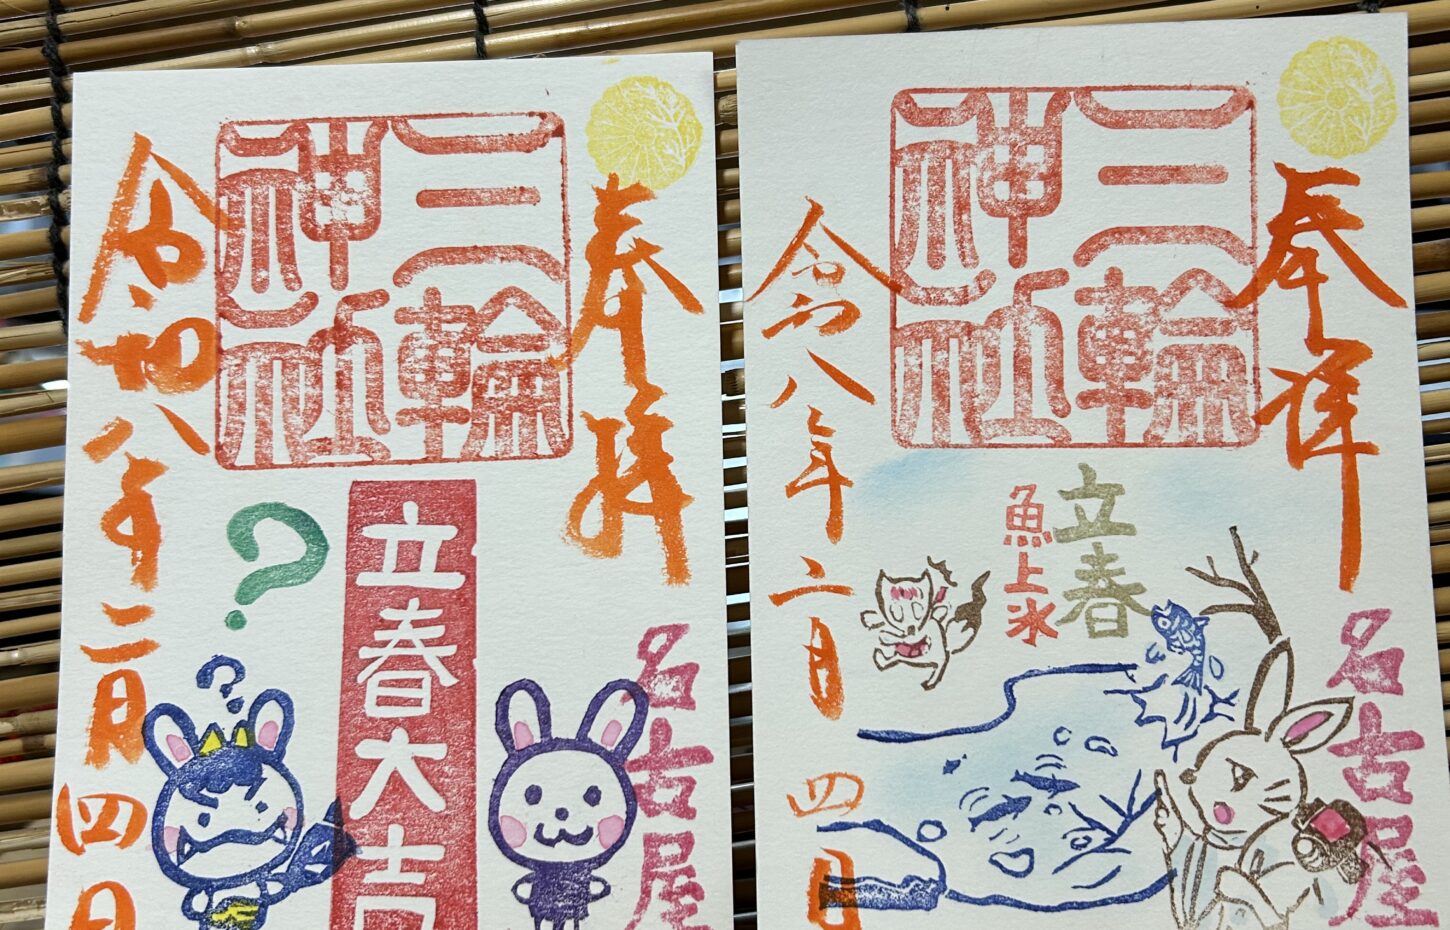 奉拝
三輪
神社
立春大吉
?
??
令和八年二月四日
名古屋
奉拝
三輪
神社
立春
魚上氷
令和八年二月四日
名古屋